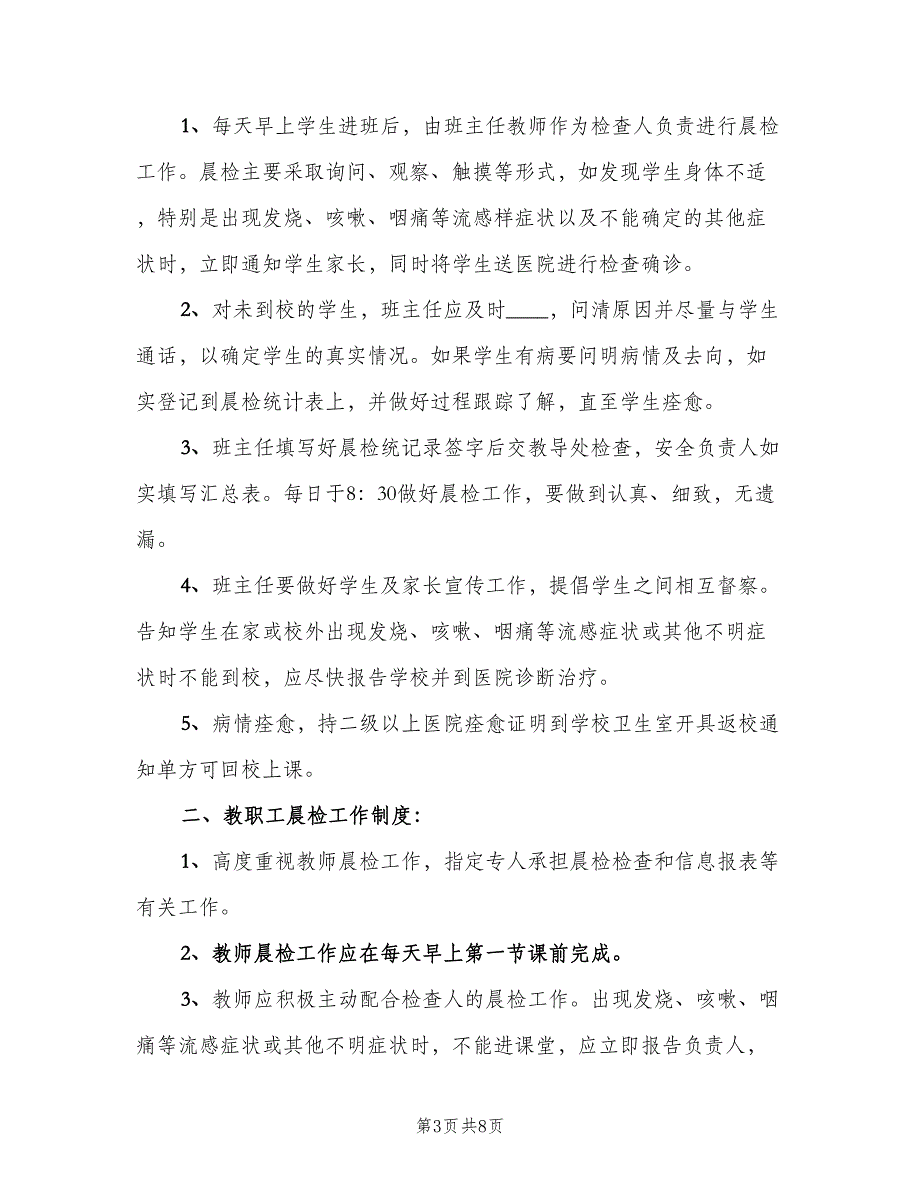 1、每天早上学生进班后，由班主任教师作为检查人负责进行晨检
工作。晨检主要采取询问、观察、触摸等形式，如发现学生身体不适
，特别是出现发烧、咳嗽、咽痛等流感样症状以及不能确定的其他症
状时，立即通知学生家长，同时将学生送医院进行检查确诊。
2、对未到校的学生，班主任应及时____，问清原因并尽量与学生
通话，以确定学生的真实情况。如果学生有病要问明病情及去向，如
实登记到晨检统计表上，并做好过程跟踪了解，直至学生痊愈。
3、班主任填写好晨检统记录签字后交教导处检查，安全负责人如
实填写汇总表。每日于8：30做好晨检工作，要做到认真、细致，无遗
漏。
4、班主任要做好学生及家长宣传工作，提倡学生之间相互督察。
告知学生在家或校外出现发烧、咳嗽、咽痛等流感症状或其他不明症
状时不能到校，应尽快报告学校并到医院诊断治疗。
5、病情痊愈，持二级以上医院痊愈证明到学校卫生室开具返校通
知单方可回校上课。
二、教职工晨检工作制度：
1、高度重视教师晨检工作，指定专人承担晨检检查和信息报表等
有关工作。
2、教师晨检工作应在每天早上第一节课前完成。
3、教师应积极主动配合检查人的晨检工作。出现发烧、咳嗽、咽
痛等流感症状或其他不明症状时，不能进课堂，应立即报告负责人，
第3页 共8页